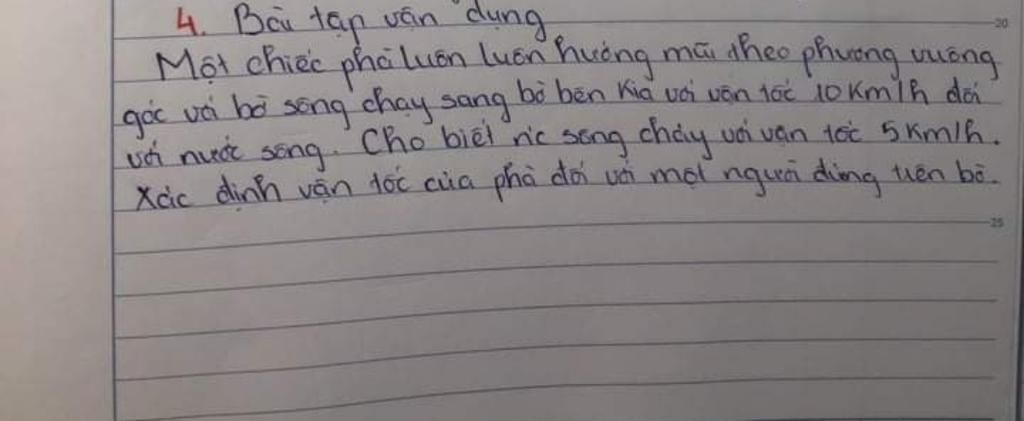 4. Bài tập vận dụng
20
Một chiếc phà luôn luôn hướng mũi theo phương vuông
góc với bờ sông chạy sang bờ bên kia với vận tốc 10 Km/h đối
với nước sông. Cho biết nc sông chảy với vận tốc 5 Km/h.
Xác định vận tốc của phà đối với một người đứng trên bờ.
25